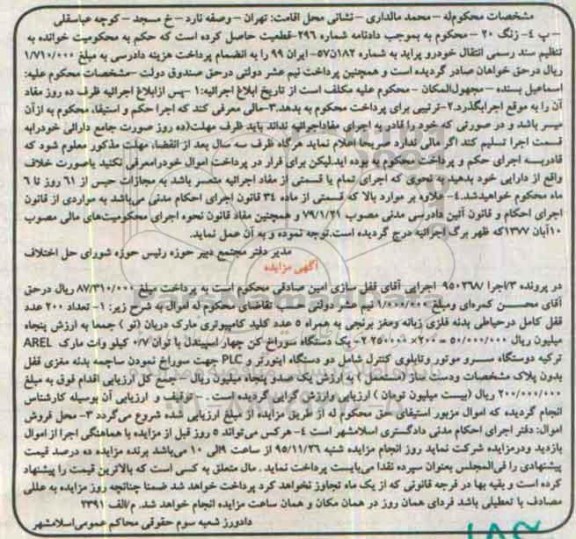 مشخصات محکوم‌له - محمد مالداری - نشانی محل اقامت: تهران - وصفنه نارد - خ مسجد - کوچه عباسقلی
-پ ٤- زنگ ٢٠ - محکوم به بموجب دادنامه شماره ٢٩٦-قطعیت حاصل کرده است که حکم به محکومیت خوانده به
تنظیم سند رسمی انتقال خودرو پراید به شماره ١٨٢ن٥٧- ایران ٩٩ را به انضمام پرداخت هزینه دادرسی به مبلغ ١/٧١٠/٠٠٠
ریال درحق خواهان صادر گردیده است و همچنین پرداخت نیم عشر دولتی درحق صندوق دولت -مشخصات محکوم علیه:
اسماعیل بسنده - مجهول‌المکان - محکوم علیه مکلف است از تاریخ ابلاغ اجرائیه: ١- پس ازابلاغ اجرائیه ظرف ده روز مفاد
آن را به موقع اجرابگذرد.٢-ترتیبی برای پرداخت محکوم به بدهد.٣-مالی معرفی کند که اجرا حکم و استیفا، محکوم به ازآن
میسر باشد و در صورتی که خود را قادر به اجرای مفاداجرائیه نداند باید ظرف مهلت(ده روز صورت جامع دارائی خودرابه
قسمت اجرا تسلیم کند اگر مالی ندارد صریحا اعلام نماید هرگاه ظرف سه سال بعد از انقضا، مهلت مذکور معلوم شود که
قادربه اجرای حکم و پرداخت محکوم به بوده اید.لیکن برای فرار در پرداخت اموال خودرامعرفی نکنید یاصورت خلاف
واقع از دارایی خود بدهید به نحوی که اجرای تمام یا قسمتی از مفاد اجرائیه متعسر باشد به مجازات حبس از ٦١ روز تا ٦
ماه محکوم خواهیدشد.٤- علاوه بر موارد بالا که قسمتی از ماده ٣٤ قانون اجرای احکام مدنی می‌باشد به مواردی از قانون
اجرای احکام و قانون آئین دادرسی مدنی مصوب ٧٩/١/٢١ و همچنین مفاد قانون نحوه اجرای محکومیت‌های مالی مصوب
١٠آبان ١٣٧٧که ظهر برگ اجرائیه درج گردیده است.توجه نموده و به آن عمل نماید.
مدیر دفتر مجتمع دبیر حوزه رئیس حوزه شورای حل اختلاف
آگهی مزایده
در پرونده ٣/اجرا ٩٥٠٢٦٨٧ اجرایی آقای قفل سازی امین صادقی محکوم است به پرداخت مبلغ ٨٧/٣١٠/٠٠٠ ریال درحق
آقای محسن کمره‌ای ومبلغ ٩/٠٠٠/٠٠٠ نیم عشر دولتی حسب تقاضای محکوم له اموال به شرح زیر: ١- تعداد ٢٠٠ عدد
قفل کامل درحیاطی بدنه فلزی زبانه ومغز برنجی به همراه ٥ عدد کلید کامپیوتری مارک دریان (نو ) جمعا به ارزش پنجاه
میلیون ریال ٥٠/٠٠٠/٠٠٠ = ٢٠٠× ٢٥٠٠٠٠ ٢- یک دستگاه سوراخ کن چهار اسپیندل با توان ٠/٧ کیلو وات مارک AREL
ترکیه دوستگاه سرو موتور وتابلوی کنترل شامل دو دستگاه اینورتر و PLC جهت سوراخ نمودن ساچمه بدنه مغزی قفل
بدون پلاک مشخصات ودست ساز (مستعمل ) به ارزش یک صدو پنجاه میلیون ریال - جمع کل ارزیابی اقدام فوق به مبلغ
٢٠٠/٠٠٠/٠٠٠ ریال (بیست میلیون تومان ) ارزیابی وارزش گرایی گردیده است. - توقیف و ارزیابی آن بوسیله کارشناس
انجام گردیده که اموال مزبور استیفای حق محکوم له از طریق مزایده از مبلغ ارزیابی شده شروع می‌گردد ٣- محل فروش
اموال: دفتر اجرای احکام مدنی دادگستری اسلامشهر است ٤- هرکس می‌تواند ٥ روز قبل از مزایده با هماهنگی اجرا از اموال
بازدید ودرمزایده شرکت نماید روز انجام مزایده شنبه ٩٥/١١/٢٦ از ساعت ٩الی ١٠ می‌باشد برنده مزایده ده درصد قیمت
پیشنهادی را فی‌المجلس بعنوان سپرده نقدا می‌بایست پرداخت نماید . مال متعلق به کسی است که بالاترین قیمت را پیشنهاد
کرده است و بقیه بها در فرجه قانونی که از یک ماه تجاوز نخواهد کرد پرداخت خواهد شد ضمنا چنانچه روز مزایده به عللی
مصادف با تعطیلی باشد فردای همان روز در همان مکان و همان ساعت مزایده انجام خواهد شد. م/الف ٢٣٩١
دادورز شعبه سوم حقوقی محاکم عمومی‌اسلامشهر